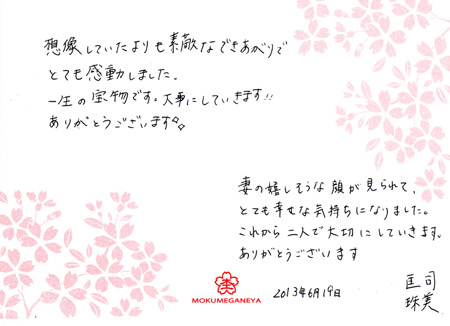 想像していたよりも素敵なできあがりで
とても感動しました。
一生の宝物です。大事にしていきます!!
ありがとうございます
妻の嬉しそうな顔が見られて、
とても幸せな気持ちになりました。
これから二人で大切にしていきます。
ありがとうございます
匡司
珠美
MOKUMEGANEYA
2013年6月19日